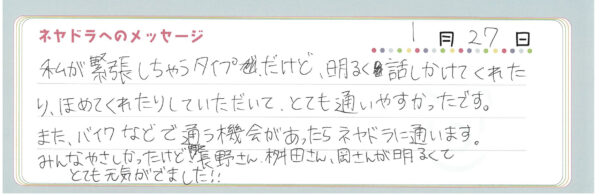 ネヤドラへのメッセージ
1月27日
私が緊張しちゃうタイプだけど、明るく話しかけてくれた
り、ほめてくれたりしていただいて、とても通いやすかったです。
また、バイクなどで通う機会があったらネヤドラに通います。
みんなやさしかったけど長野さん、桝田さん、岡さんが明るくて
とても元気がでました!!